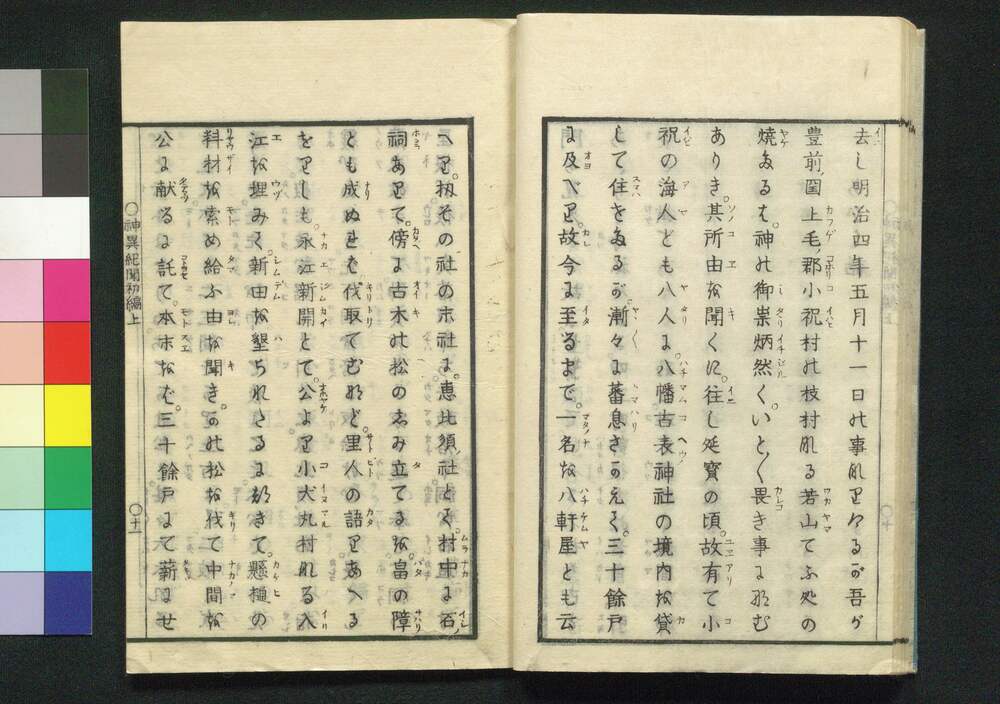 去し明治四年五月十一日の事なりけるが吾が
豊前ノ国上毛ノ郡小祝村の枝村なる若山てふ処の
焼たるは。神の御祟炳然く。いと〱畏き事になむ
ありき。其所由を聞くに。往し延宝の頃。故有て小
祝の海人ども八人に。八幡古表神社の境内を貸
して住せたるが漸々に蕃息さかえて。三十餘戸
に及べり。故今に至るまで。一名を八軒屋とも云
へり。扨その社の末社に。恵比須ノ社とて。村中に石ノ
祠ありて。傍に古木の松のゑみ立てるを。畠の障
とも成ぬれば。伐取てむなど。里人の語りあへる
をりしも。永江新開とて。公より小犬丸村なる入
江を埋みて。新田を墾られたるに就きて。懸樋の
料材を索め給ふ由を聞き。かの松を伐て中間を
公に献るに託て。本末をば。三十餘戸にて薪にせ
〇神異紀聞初編上
〇十一